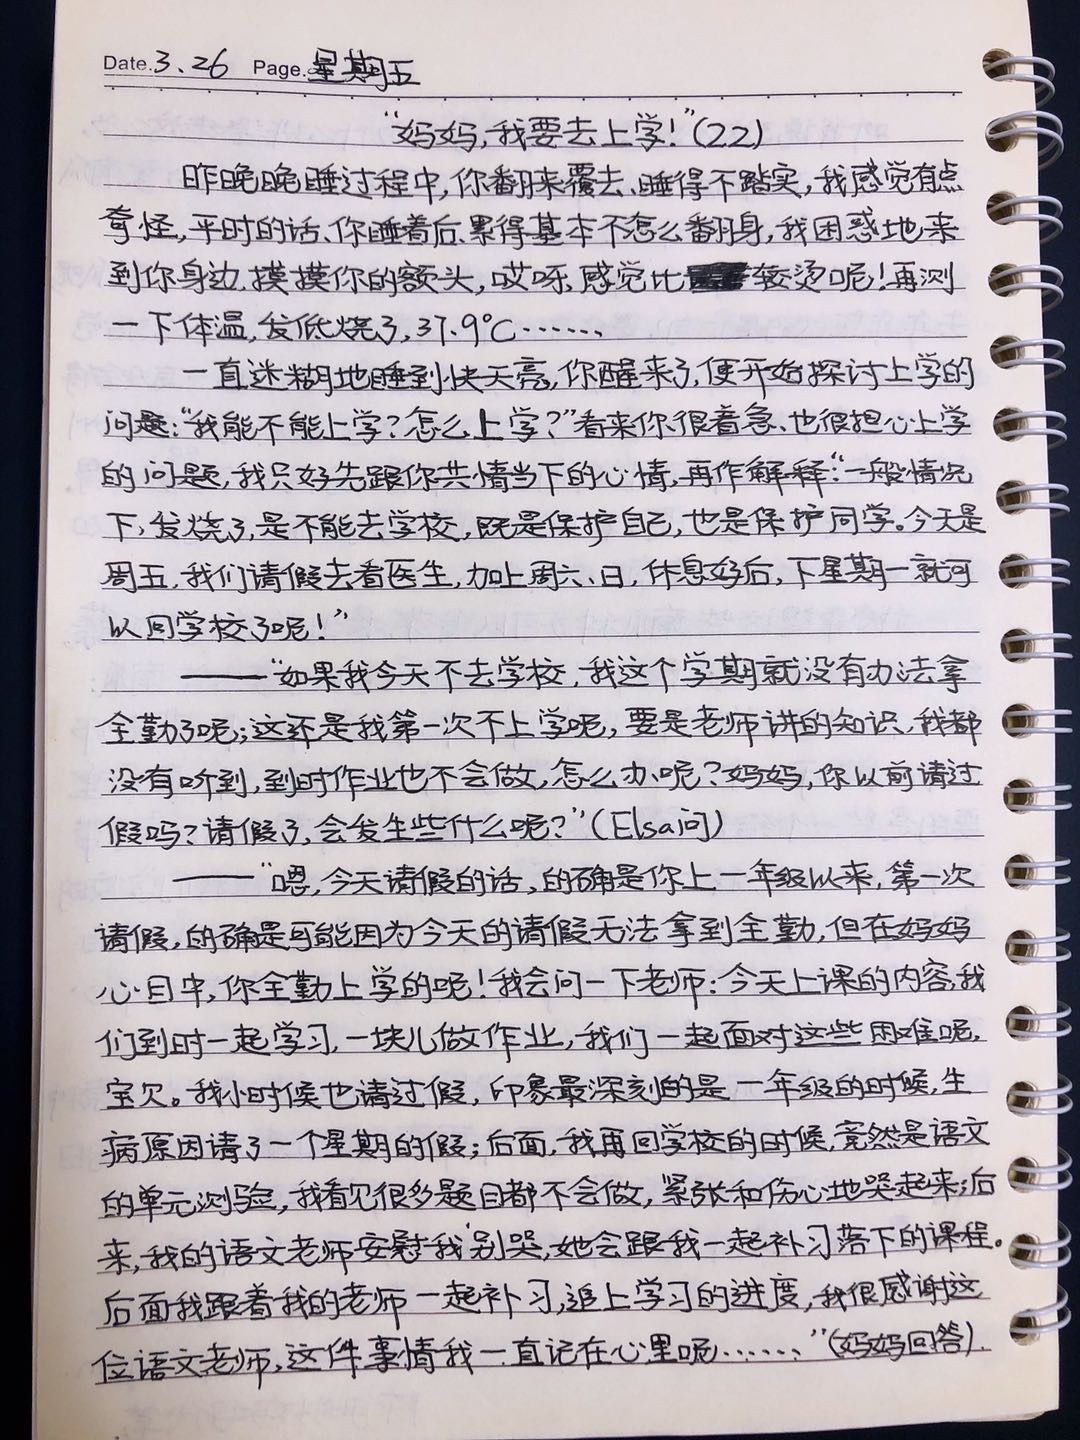 Date. 3.26 Page. 星期五
“妈妈,我要去上学!”(22)
昨晚晚睡过程中,你翻来覆去、睡得不踏实,我感觉有点
奇怪,平时的话、你睡着后、累得基本不怎么翻身,我困惑地来
到你身边、摸摸你的额头,哎呀、感觉比较烫呢!再测
一下体温,发低烧了,37.9℃……
一直迷糊地睡到快天亮,你醒来了,便开始探讨上学的
问题:“我能不能上学?怎么上学?”看来你很着急、也很担心上学
的问题,我只好先跟你共情当下的心情,再作解释:“一般情况
下,发烧了,是不能去学校,既是保护自己,也是保护同学。今天是
周五,我们请假去看医生,加上周六、日,休息好后,下星期一就可
以回学校了呢!”
——“如果我今天不去学校,我这个学期就没有办法拿
全勤了呢;这还是我第一次不上学呢,要是老师讲的知识、我都
没有听到,到时作业也不会做,怎么办呢?妈妈,你以前请过
假吗?请假了,会发生些什么呢?”(Elsa问)
——“嗯,今天请假的话,的确是你上一年级以来,第一次
请假,的确是可能因为今天的请假无法拿到全勤,但在妈妈
心目中,你全勤上学的呢!我会问一下老师:今天上课的内容,我
们到时一起学习,一块儿做作业,我们一起面对这些困难呢,
宝贝。我小时候也请过假,印象最深刻的是一年级的时候,生
病原因请了一个星期的假;后面,我再回学校的时候,竟然是语文
的单元测验,我看见很多题目都不会做,紧张和伤心地哭起来;后
来,我的语文老师安慰我‘别哭’,她会跟我一起补习落下的课程。
后面我跟着我的老师一起补习,追上学习的进度,我很感谢这
位语文老师,这件事情我一直记在心里呢……”(妈妈回答).